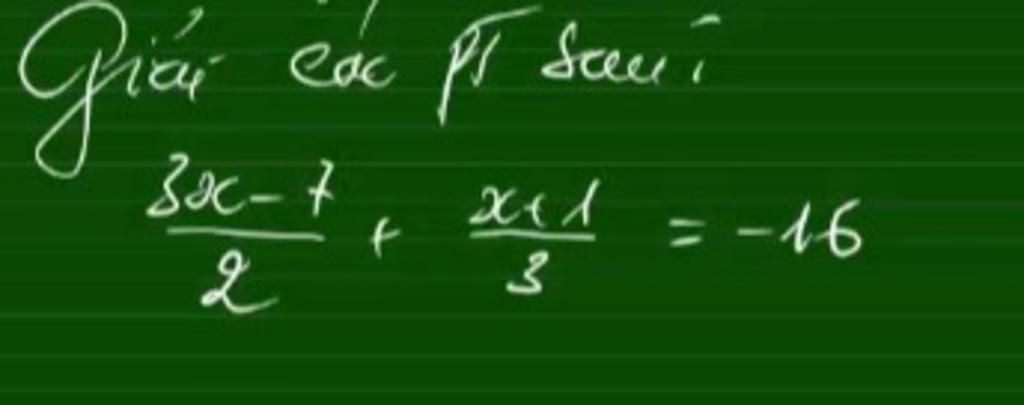 Giải các pt sau:
\frac{3x-7}{2} + \frac{x+1}{3} = -16